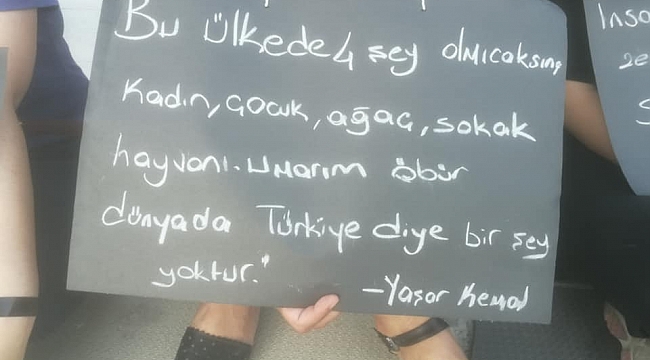 Bu ülkede 4 şey olmıcaksın;
Kadın, çocuk, ağaç, sokak
hayvanı. Umarım öbür
dünyada Türkiye diye bir şey
yoktur."
-Yaşar Kemal